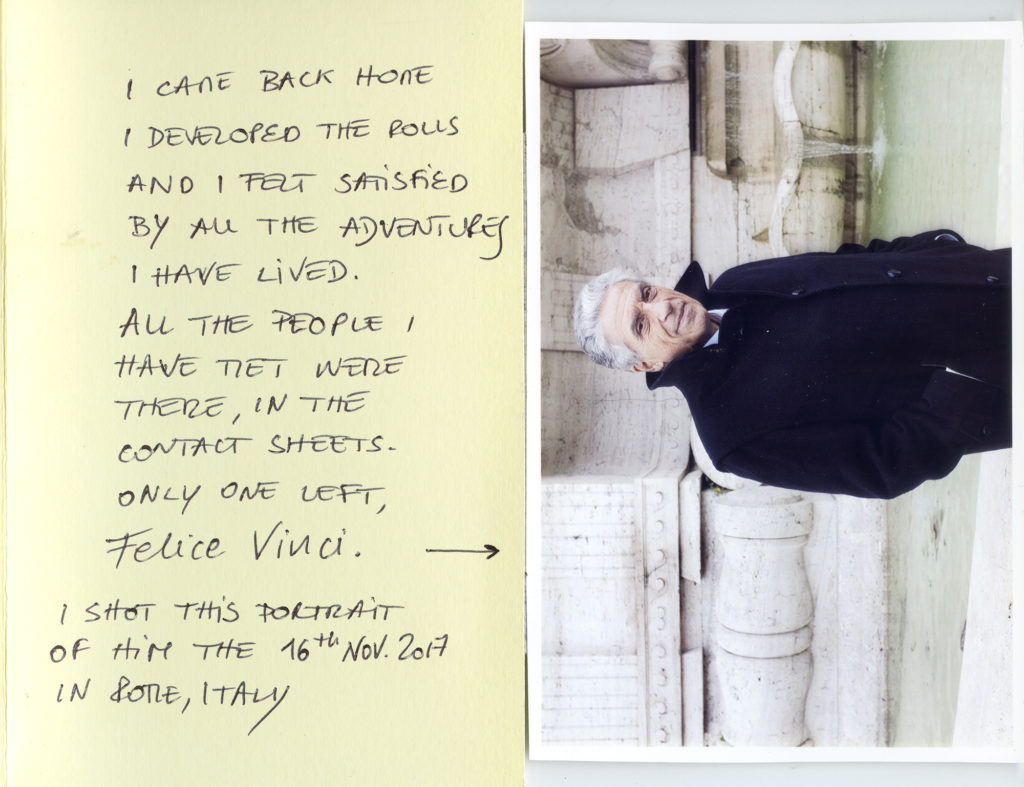 I CAME BACK HOME
I DEVELOPED THE ROLLS
AND I FELT SATISFIED
BY ALL THE ADVENTURES
I HAVE LIVED.
ALL THE PEOPLE I
HAVE MET WERE
THERE, IN THE
CONTACT SHEETS.
ONLY ONE LEFT,
Felice Vinci. →
I SHOT THIS PORTRAIT
OF HIM THE 16th NOV. 2017
IN ROME, ITALY